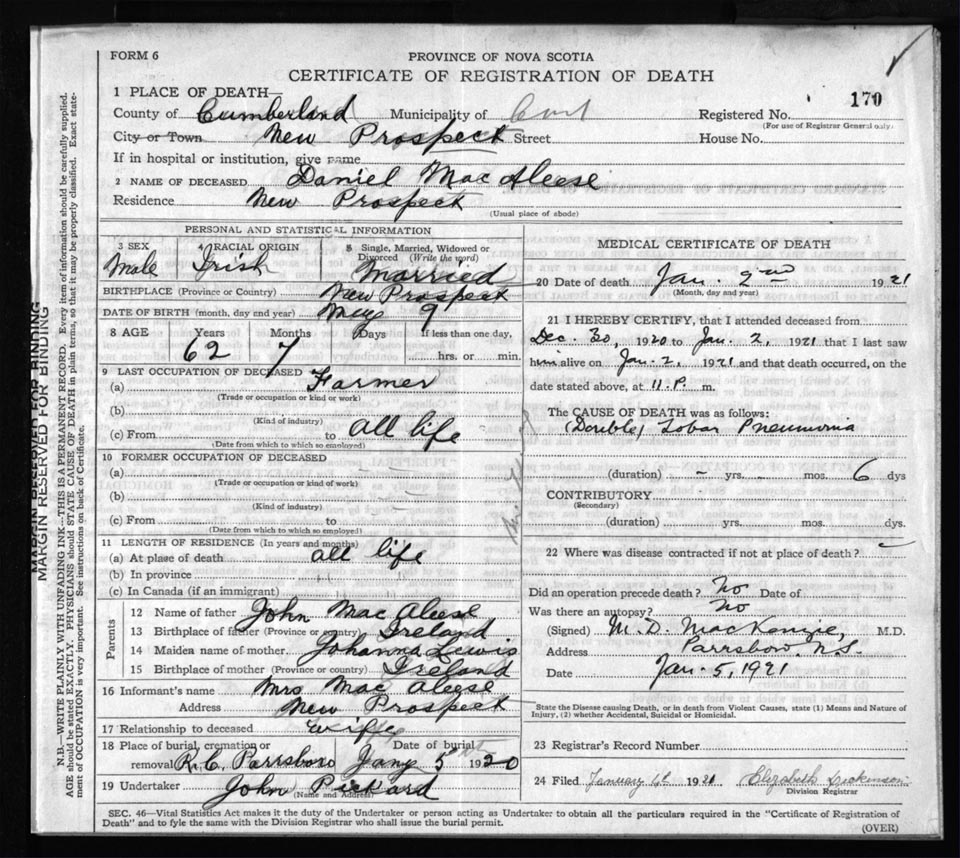 FORM 6
PROVINCE OF NOVA SCOTIA
CERTIFICATE OF REGISTRATION OF DEATH
1 PLACE OF DEATH—
170
County of Cumberland Municipality of Registered No.
(For use of Registrar General only)
City or Town New Prospect Street House No.
If in hospital or institution, give name
2 NAME OF DECEASED Daniel Mac Aleese
Residence New Prospect
(Usual place of abode)
PERSONAL AND STATISTICAL INFORMATION
3 SEX 4 RACIAL ORIGIN 5 Single, Married, Widowed or Divorced (Write the word)
Male Irish Married
BIRTHPLACE (Province or Country) New Prospect
DATE OF BIRTH (month, day and year) 9
8 AGE Years Months Days If less than one day,
62 7 hrs. or min.
9 LAST OCCUPATION OF DECEASED
(a) Farmer
(Trade or occupation or kind of work)
(b)
(Kind of industry)
(c) From to all life
(Date from which to which so employed)
10 FORMER OCCUPATION OF DECEASED
(a)
(Trade or occupation or kind of work)
(b)
(Kind of industry)
(c) From to
(Date from which to which so employed)
11 LENGTH OF RESIDENCE (In years and months)
(a) At place of death all life
(b) In province
(c) In Canada (if an immigrant)
Parents
12 Name of father John Mac Aleese
13 Birthplace of father (Province or country) Ireland
14 Maiden name of mother Johanna Lewis
15 Birthplace of mother (Province or country) Ireland
16 Informant's name Mrs Mac Aleese
Address New Prospect
17 Relationship to deceased wife
18 Place of burial, cremation or removal R.C. Parrsboro Date of burial Jany 5th 1920
19 Undertaker John Pickard
(Name and Address)
MEDICAL CERTIFICATE OF DEATH
20 Date of death Jan. 2nd 1921
(Month, day and year)
21 I HEREBY CERTIFY, that I attended deceased from
Dec. 30, 1920 to Jan. 2, 1921 that I last saw
him alive on Jan. 2, 1921 and that death occurred, on the
date stated above, at 11. P. m.
The CAUSE OF DEATH was as follows:
(Double) Lobar Pneumonia
(duration) – yrs. – mos. 6 dys
CONTRIBUTORY
(Secondary)
(duration) yrs. mos. dys.
22 Where was disease contracted if not at place of death?
Did an operation precede death? No Date of
Was there an autopsy? No
(Signed) M. D. MacKenzie, M.D.
Address Parrsboro N.S.
Date Jan. 5, 1921
State the Disease causing Death, or in death from Violent Causes, state (1) Means and Nature of
Injury, (2) whether Accidental, Suicidal or Homicidal.
23 Registrar's Record Number
24 Filed January 6th 1921 Elizabeth Dickinson
Division Registrar
SEC. 46—Vital Statistics Act makes it the duty of the Undertaker or person acting as Undertaker to obtain all the particulars required in the "Certificate of Registration of
Death" and to fyle the same with the Division Registrar who shall issue the burial permit.
(OVER)
MARGIN RESERVED FOR BINDING
MARGIN RESERVED FOR BINDING
N.B.—WRITE PLAINLY WITH UNFADING INK—THIS IS A PERMANENT RECORD. Every item of information should be carefully supplied.
AGE should be stated EXACTLY. PHYSICIANS should STATE CAUSE OF DEATH in plain terms, so that it may be properly classified. Exact state-
ment of OCCUPATION is very important. See instructions on back of Certificate.